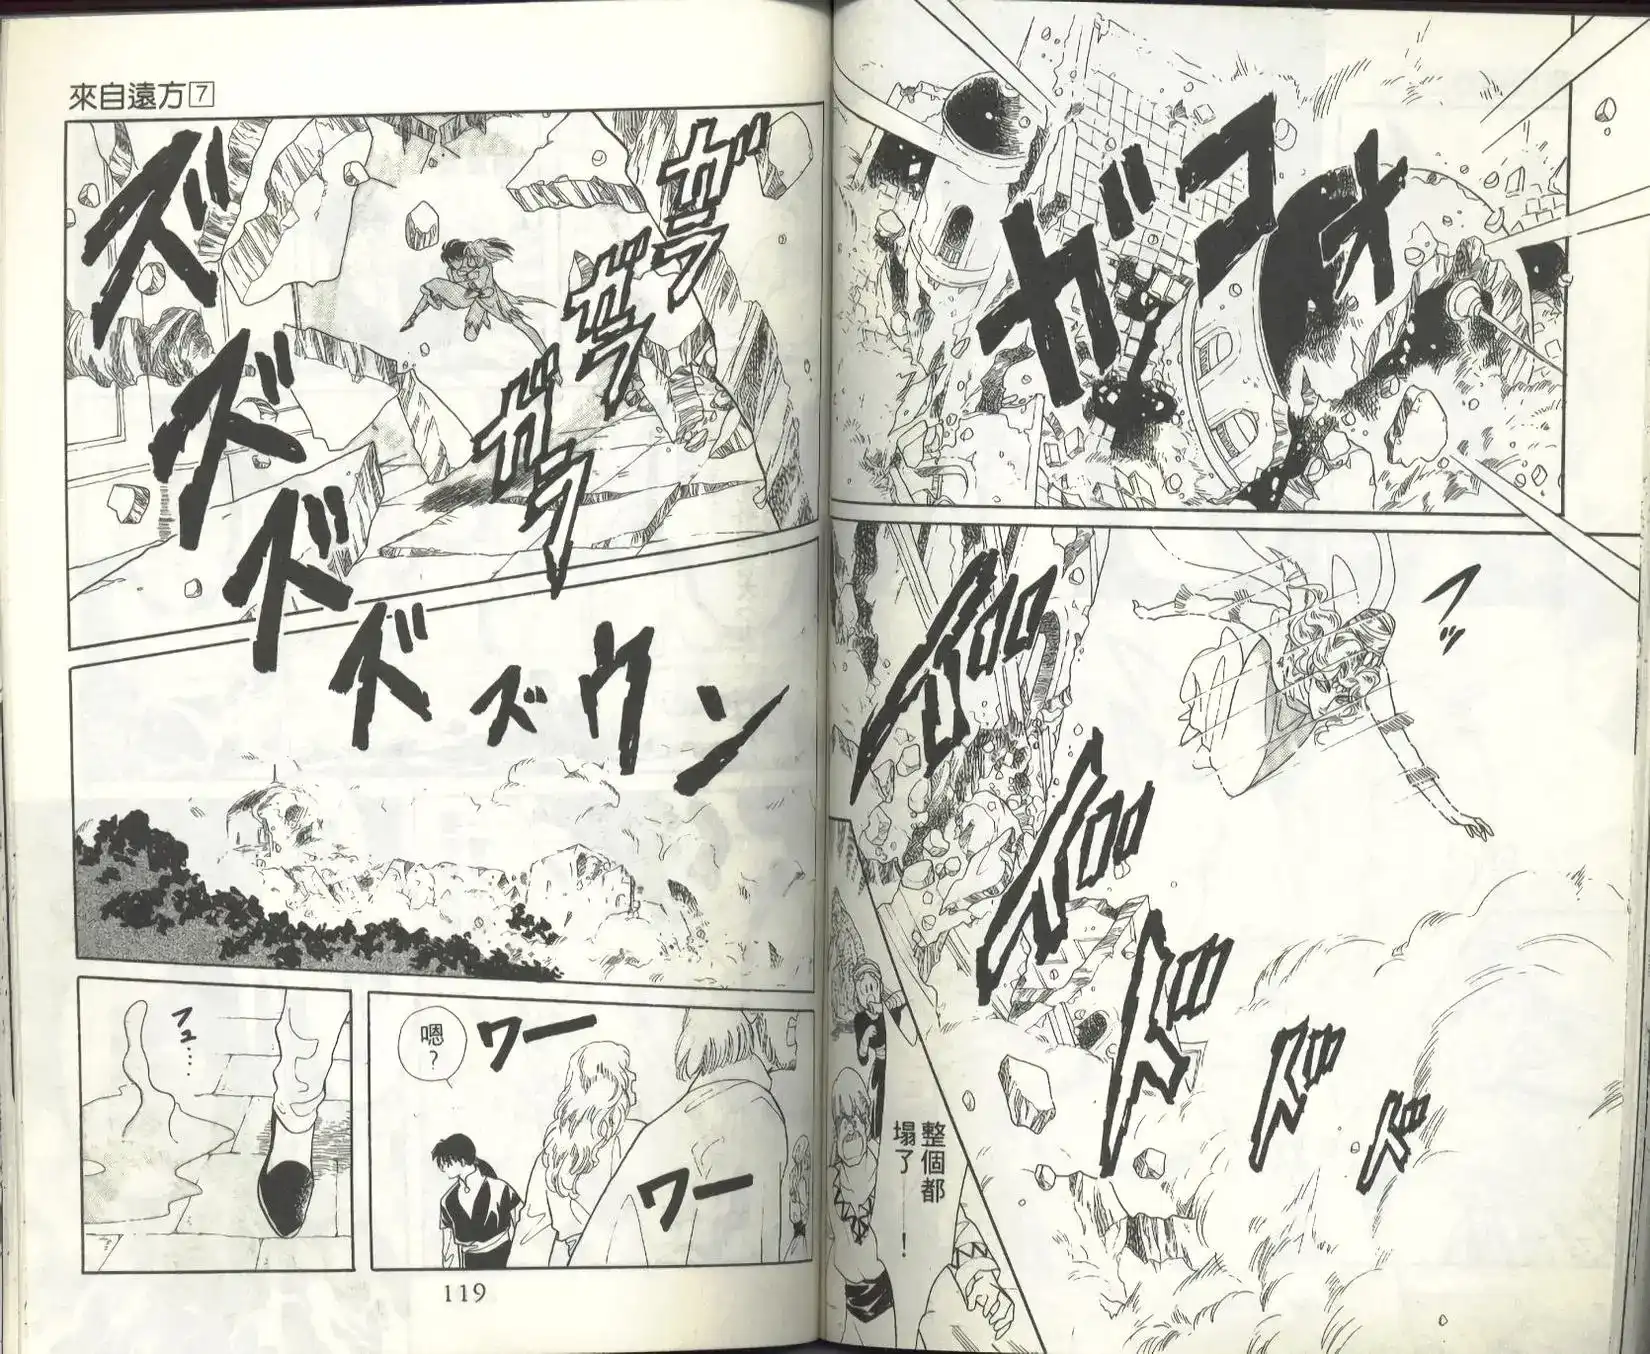 ガコォ
ガラガラガラ
フッ
整個都
塌了──!
來自遠方7
ガラガラガラ
ズズズズズウン
ワー
嗯?
ワー
フュ……
119